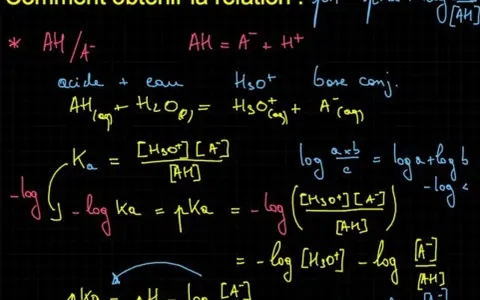 Comment obtenir la relation :
[AH]
* AH/A⁻ AH = A⁻ + H⁺
acide + eau H₃O⁺ base conj.
AH(aq) + H₂O(l) = H₃O⁺(aq) + A⁻(aq)
Ka = [H₃O⁺][A⁻] / [AH] log a×b/c = log a + log b
-log
-log
-log Ka = pKa = -log([H₃O⁺][A⁻] / [AH])
= -log [H₃O⁺] - log [A⁻] / [AH]
pKa = pH - log [A⁻]